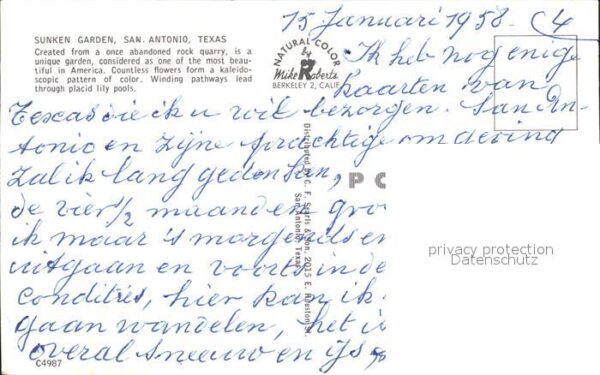 SUNKEN GARDEN, SAN ANTONIO, TEXAS
Created from a once abandoned rock quarry, is a
unique garden, considered as one of the most beau-
tiful in America. Countless flowers form a kaleido-
scopic pattern of color. Winding pathways lead
through placid lily pools.
NATURAL COLOR
Mike Roberts
BERKELEY 2, CALIF
15 Januari 1958. C4
Ik heb nog enige
kaarten van
Texas die ik u wil bezorgen. San An-
tonio en zijne prachtige omgeving
zal ik lang gedenken,
de vier½ maanden
ik maar 's morgends en
uitgaan en voorts in de
condities, hier kan ik
gaan wandelen, het i
overal sneeuw en ijs
Distributed by C. F. Searls & Son, 2015 E. Houston St.
San Antonio Texas
P C
privacy protection
Datenschutz
C4987